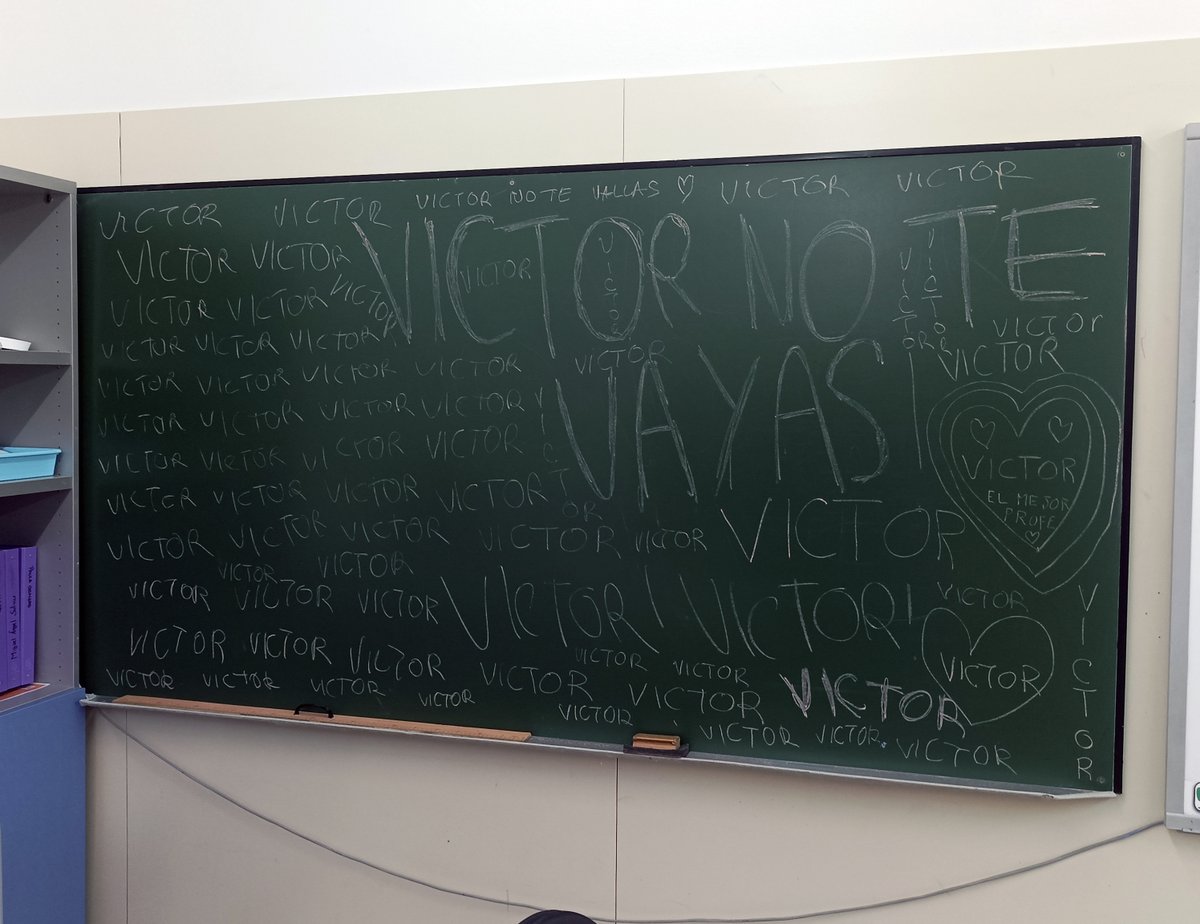 VICTOR VICTOR VICTOR NO TE VALLAS ♡ VICTOR VICTOR
VICTOR NO TE
VAYAS!
VICTOR VICTOR VICTOR VICTOR
VICTOR
VICTOR
VICTOR
VICTOR VICTOR VICTOR
VICTOR VICTOR VICTOR VICTOR
VICTOR VICTOR
VICTOR VICTOR VICTOR VICTOR
VICTOR VICTOR VICTOR VICTOR
VICTOR
VICTOR VICTOR VICTOR VICTOR
VICTOR VICTOR VICTOR VICTOR
VICTOR
EL MEJOR
PROFE
VICTOR VICTOR VICTOR VICTOR VICTOR VICTOR
VICTOR VICTOR
VICTOR VICTOR VICTOR VICTOR! VICTOR! VICTOR
VICTOR VICTOR VICTOR VICTOR VICTOR
VICTOR
VICTOR VICTOR VICTOR VICTOR VICTOR VICTOR VICTOR
VICTOR VICTOR VICTOR VICTOR
VICTOR
Miguel Angel